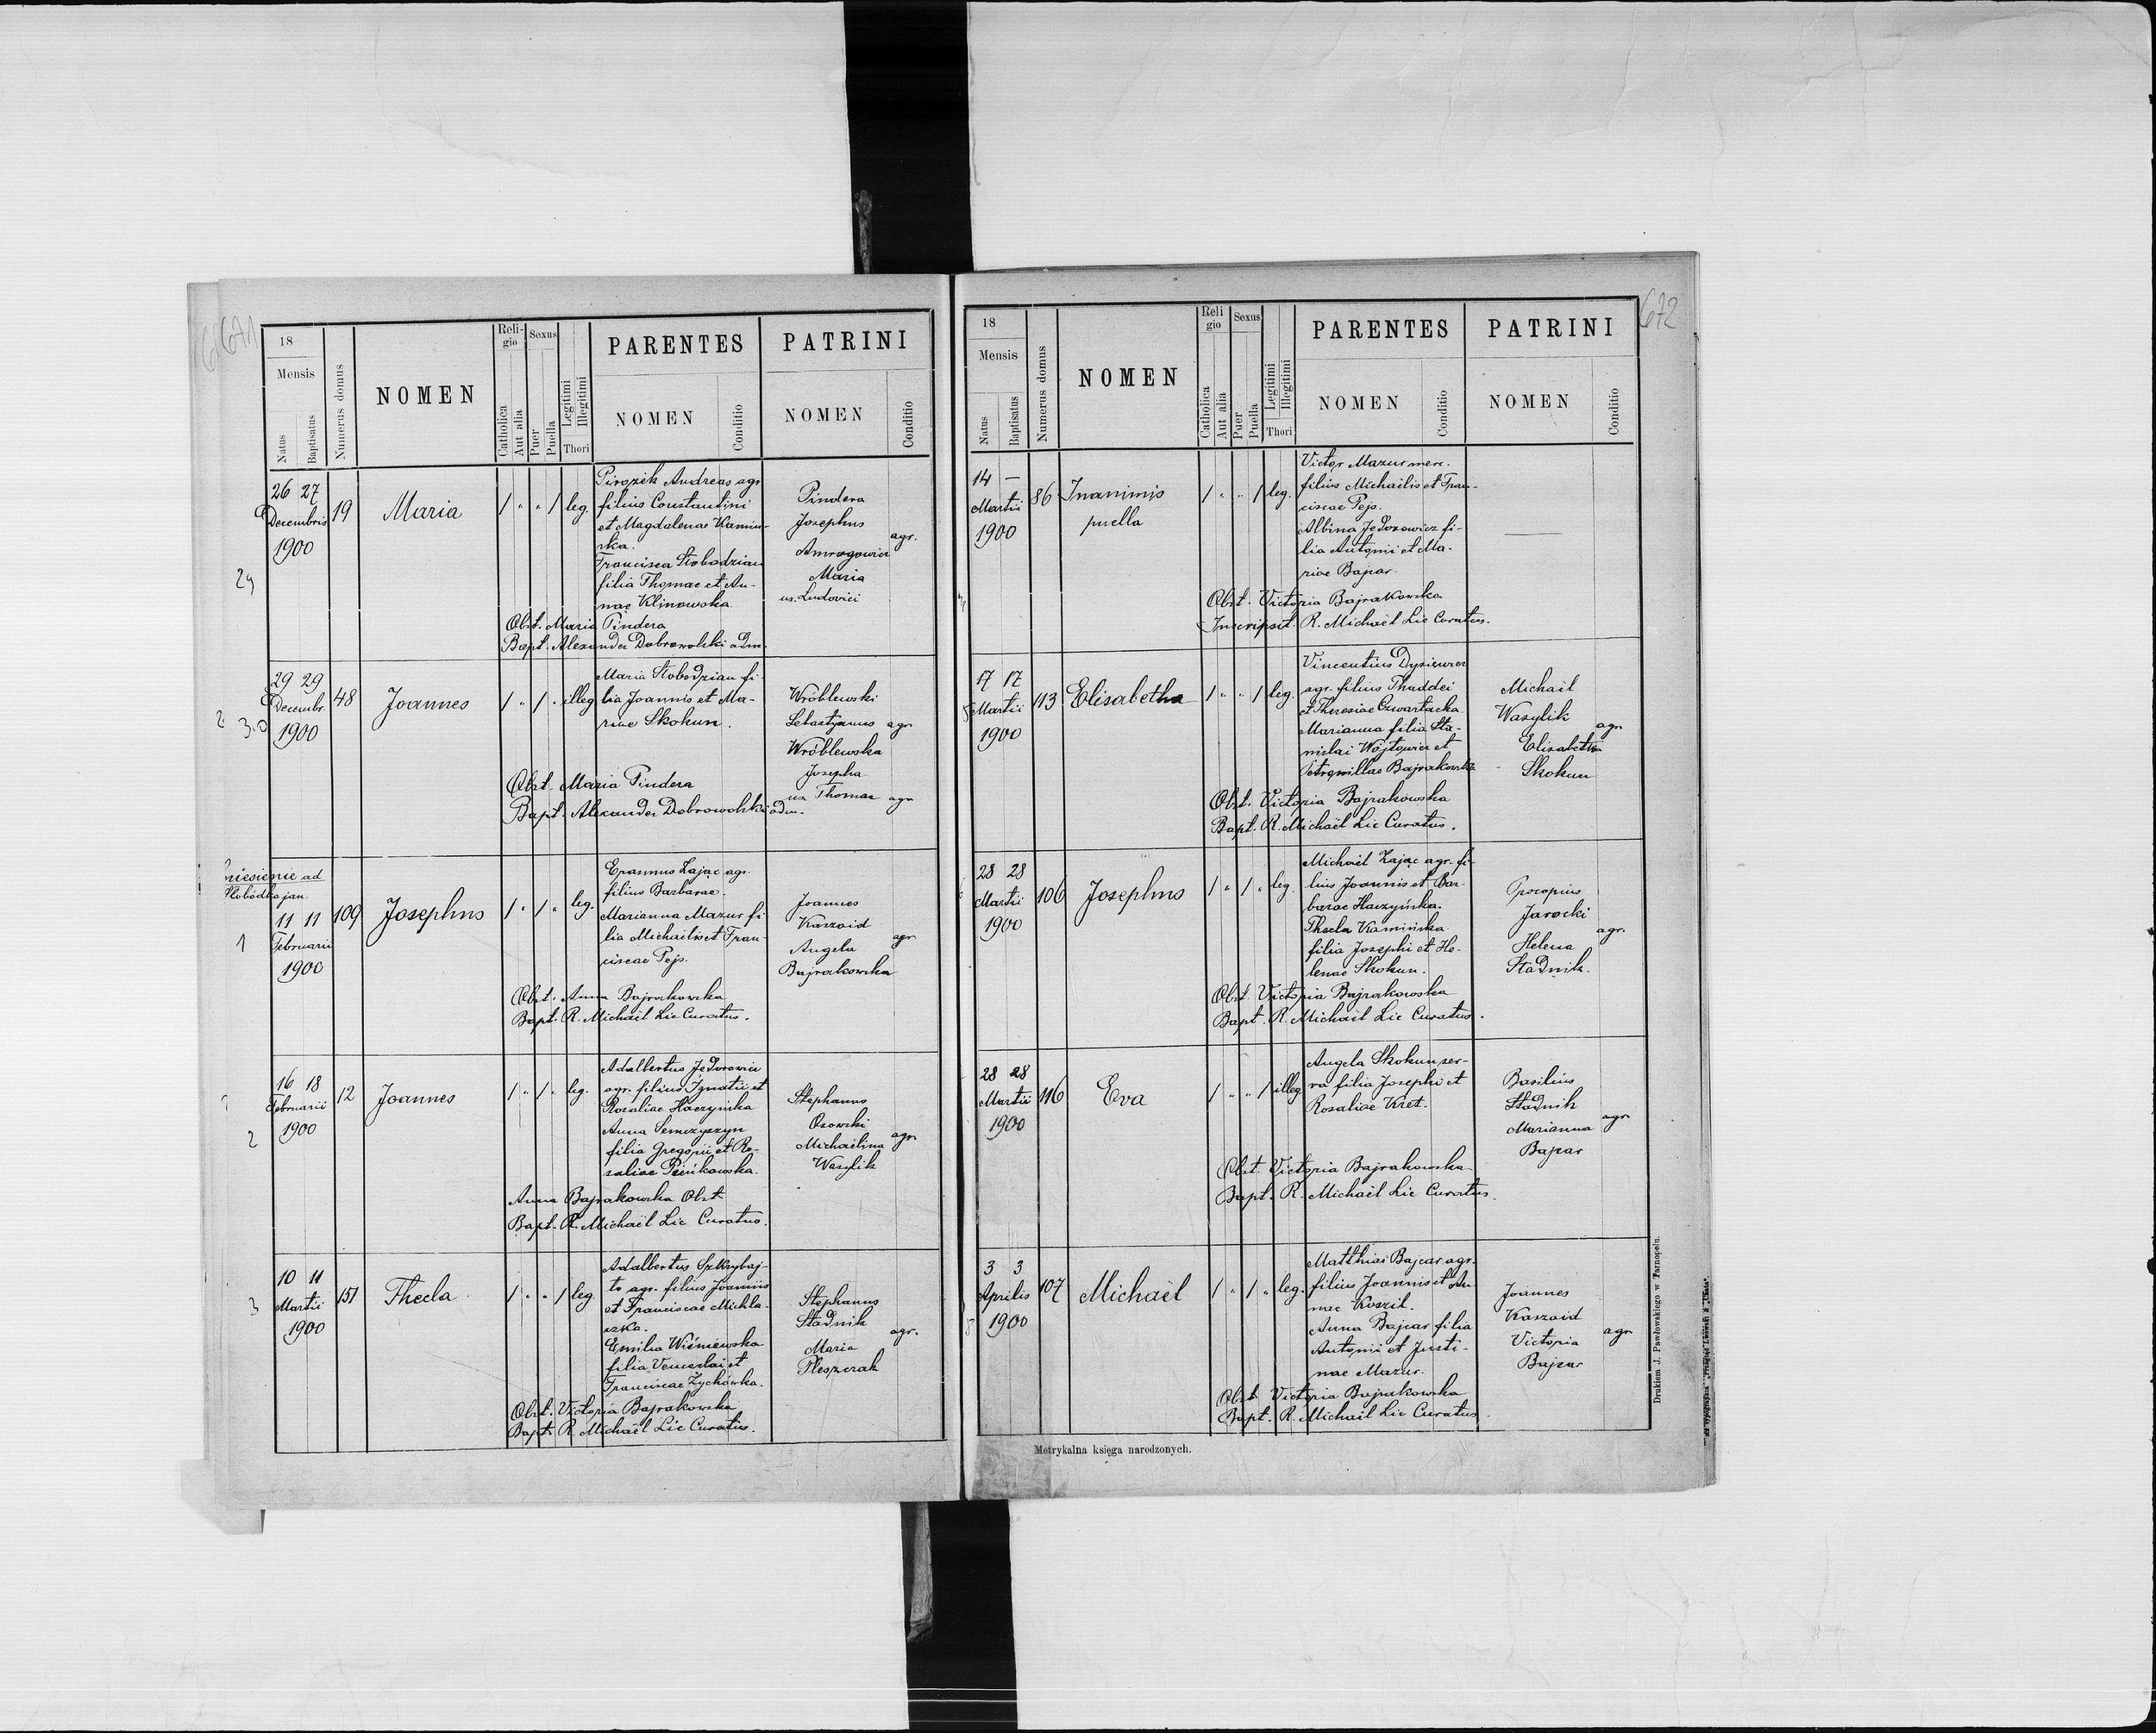 671
18
Mensis
Natus
Baptisatus
Numerus domus
NOMEN
Reli-
gio
Catholica
Aut alia
Sexus
Puer
Puella
Legitimi
Illegitimi
Thori
PARENTES
NOMEN
Conditio
PATRINI
NOMEN
Conditio
29
26 27
Decembris
1900
19
Maria
/ " " / leg.
Pirozek Andreas agr
filius Constantini
et Magdalenae Kamin-
ska.
Francisca Slobodzian
filia Thomae et An-
nae Klimowska.
Pindera
Josephus
agr.
Amrogowicz
Maria
ux. Ludovici
Obst. Maria Pindera
Bapt. Alexander Dobrowolski adm.
30
29 29
Decembr.
1900
48
Joannes
/ " / " illeg
Maria Slobodzian fi-
lia Joannis et Ma-
riae Skokun.
Wróblewski
Sebastyanus agr
Wróblewska
Josepha
ux Thomae agr
Obst. Maria Pindera
Bapt. Alexander Dobrowolski adm.
ad
Slobódka jan.
1
11 11
Februarii
1900
109
Josephus
/ " / " leg.
Erasmus Zając agr.
filius Barbarae.
Marianna Mazur fi-
lia Michaelis et Fran-
ciscae Pejs.
Joannes
Kaszaid
Angela
agr
Bajrakowska
Obst. Anna Bajrakowska
Bapt. R. Michaël Lic Curatus.
2
16 18
Februarii
1900
12
Joannes
/ " / " leg.
Adalbertus Jedorowicz
agr. filius Ignatii et
Rosaliae Haczyńska
Anna Semczyszyn
filia Gregorii et Ro-
saliae Pieńkowska.
Stephanus
Osowski
Michaëlina
agr
Wasylik
Anna Bajrakowska Obst
Bapt. R. Michaël Lic Curatus.
3
10 11
Martii
1900
151
Thecla
/ " " / leg
Adalbertus Szkrybaj-
to agr. filius Joannis
et Franciscae Michla-
szka.
Emilia Wiśniewska
filia Venceslai et
Franciscae Zychówka.
Stephanus
Stadnik
agr.
Maria
Pleszczak
Obst. Victoria Bajrakowska
Bapt. R. Michaël Lic Curatus.
672
18
Mensis
Natus
Baptisatus
Numerus domus
NOMEN
Reli
gio
Catholica
Aut alia
Sexus
Puer
Puella
Legitimi
Illegitimi
Thori
PARENTES
NOMEN
Conditio
PATRINI
NOMEN
Conditio
14 —
Martii
1900
86
Inanimis
puella
/ " " / leg.
Victor Mazur merc.
filius Michaelis et Fran-
ciscae Pejs.
Albina Jedorowicz fi-
lia Antonii et Ma-
riae Bajcar.
Obst. Victoria Bajrakowska
Inscripsit. R. Michaël Lic Curatus.
17 17
Martii
1900
113
Elisabetha
/ " " / leg.
Vincentius Dysiewicz
agr. filius Thaddei
et Theresiae Czwartacka.
Marianna filia Sta-
nislai Wojtowicz et
Petronillae Bajrakowska
Michaël
Wasylik
agr
Elisabetha
Skokun
Obst. Victoria Bajrakowska
Bapt. R. Michaël Lic Curatus.
28 28
Martii
1900
106
Josephus
/ " / " leg.
Michaël Zając agr. fi-
lius Joannis et Bar-
barae Haczyńska.
Thecla Kamińska
filia Josephi et He-
lenae Skokun.
Procopius
Jarocki
agr.
Helena
Stadnik.
Obst. Victoria Bajrakowska
Bapt. R. Michaël Lic Curatus.
28 28
Martii
1900
116
Eva
/ " " / illeg
Angela Skokun ser-
va filia Josephi et
Rosaliae Kret.
Basilius
Stadnik
agr
Marianna
Bajcar
Obst. Victoria Bajrakowska
Bapt. R. Michaël Lic Curatus.
3 3
Aprilis
1900
107
Michaël
/ " / " leg.
Matthias Bajcar agr.
filius Joannis et An-
nae Koszil.
Anna Bajcar filia
Antonii et Justi-
nae Mazur.
Joannes
Kaszaid
agr
Victoria
Bajcar
Obst. Victoria Bajrakowska
Bapt. R. Michaël Lic Curatus.
Metrykalna księga narodzonych.
Drukiem J. Pawłowskiego w Tarnopolu.